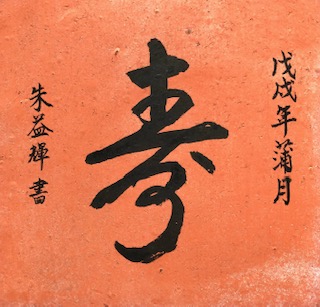 戊戌年蒲月
寿
朱益輝書